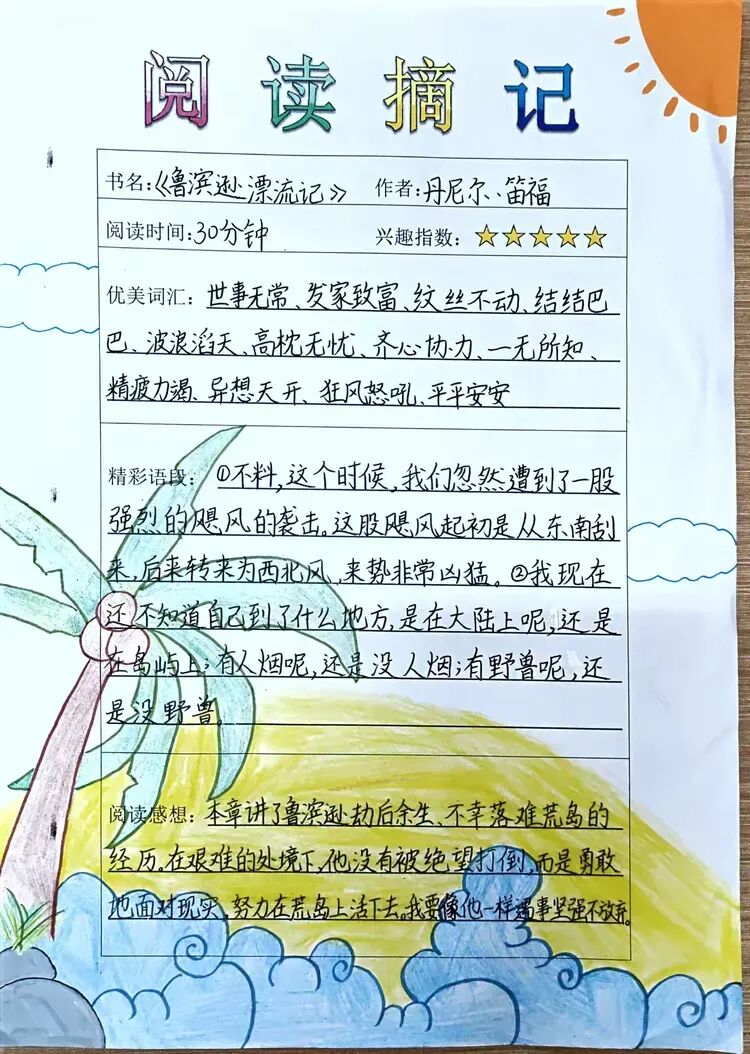 阅读摘记
书名:《鲁滨逊漂流记》 作者:丹尼尔、笛福
阅读时间:30分钟 兴趣指数:☆☆☆☆☆
优美词汇:世事无常、发家致富、纹丝不动、结结巴
巴、波浪滔天、高枕无忧、齐心协力、一无所知、
精疲力竭、异想天开、狂风怒吼、平平安安
精彩语段:①不料,这个时候,我们忽然遭到了一股
强烈的飓风的袭击。这股飓风起初是从东南刮
来,后来转来为西北风,来势非常凶猛。②我现在
还不知道自己到了什么地方,是在大陆上呢,还是
在岛屿上;有人烟呢,还是没人烟;有野兽呢,还
是没野兽。
阅读感想:本章讲了鲁滨逊劫后余生、不幸落难荒岛的
经历。在艰难的处境下,他没有被绝望打倒,而是勇敢
地面对现实,努力在荒岛上活下去。我要像他一样遇事坚强不放弃。